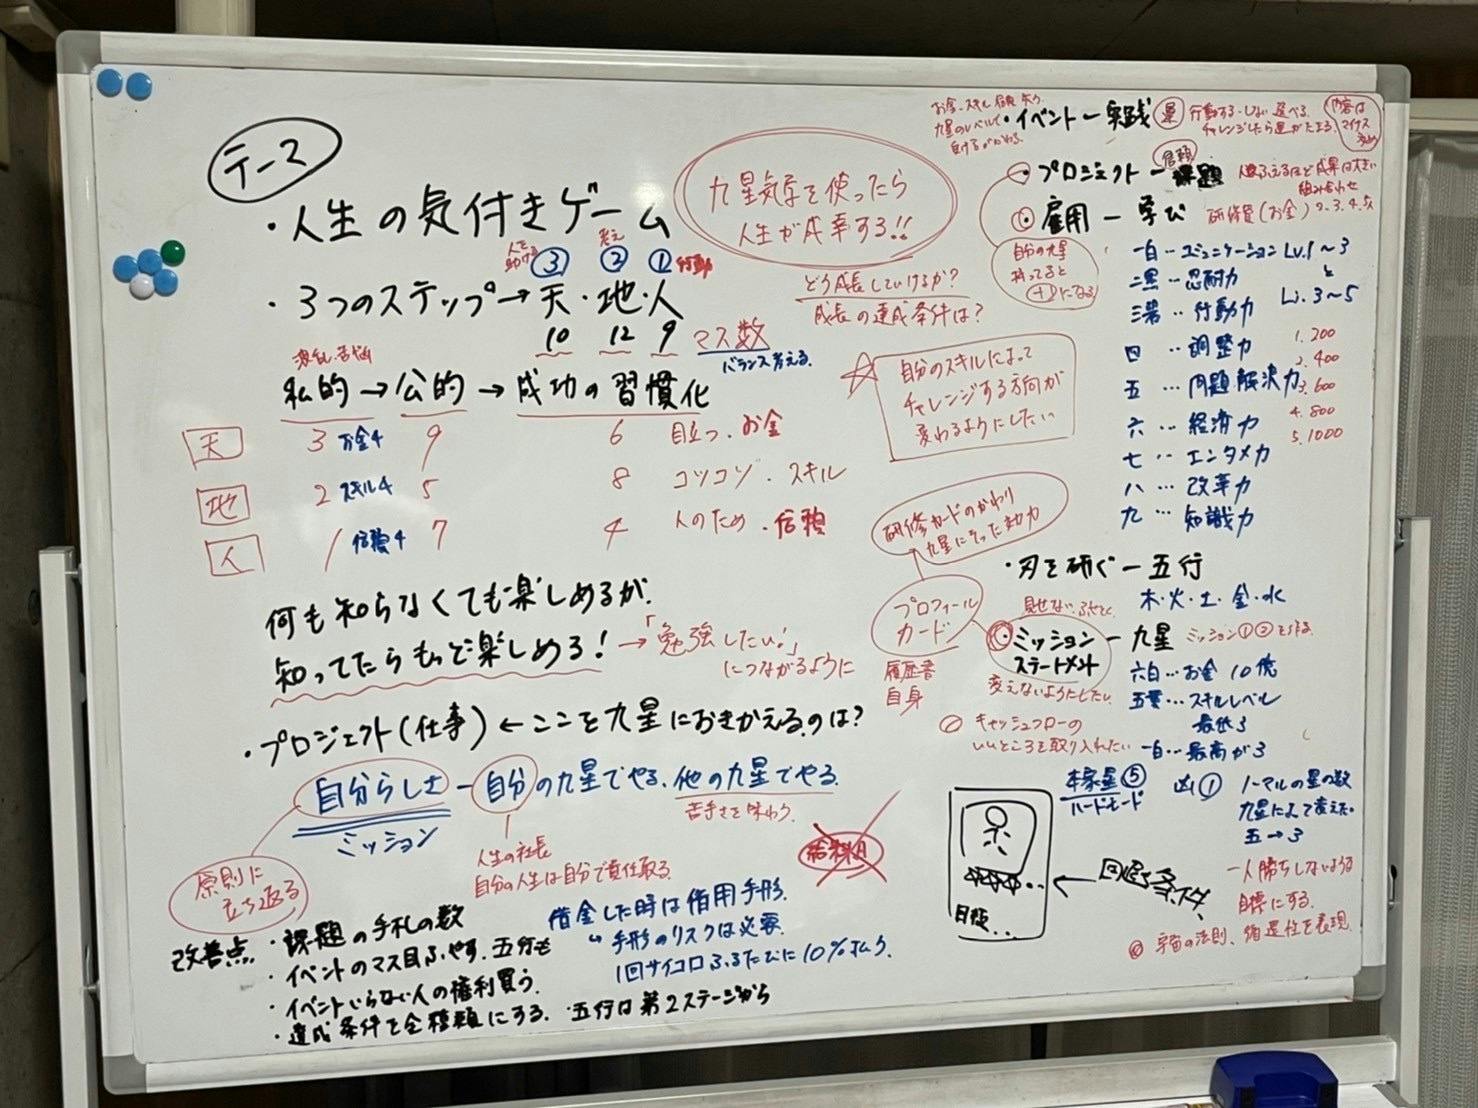 テーマ
・人生の気付きゲーム
人を助ける ③ ② ① 行動
・3つのステップ→天・地・人
10 12 9 マス数
バランス考える
波乱 苦悩
私的→公的→成功の習慣化
天 3 お金4 9 6 目立つ・お金
地 2 スキル4 5 8 コツコツ・スキル
人 1 信頼4 7 4 人のため・信頼
何も知らなくても楽しめるが、
知ってたらもっと楽しめる!→「勉強したい!」
につながるように
・プロジェクト(仕事)←ここを九星におきかえるのは?
自分らしさー自分の九星でやる、他の九星でやる
ミッション
苦手さを味わう
人生の社長
自分の人生は自分で責任取る
原則に
立ち返る
給料月
借金した時は借用手形
手形のリスクは必要
1回サイコロふるたびに10%払う
改善点
・課題の手札の数
・イベントのマス目ふやす、五行も
・イベントいらない人の権利買う
・達成条件を全種類にする ・五行は第2ステージから
九星気学を使ったら
人生が成幸する!!
どう成長していけるか?
成長の達成条件は?
☆自分のスキルによって
チャレンジする方向が
変わるようにしたい
お金、スキル、信頼
・イベントー実践 運 行動する・しない 選べる
チャレンジしたら運がたまる
内容は
マイナス
多め
信頼
・プロジェクトー課題 人数ふえるほど成果は大きい
組み合わせ
・雇用ー学び 研修費(お金)
自分の九星
持ってると
+になる
一白…コミュニケーション Lv.1〜3
と
二黒…忍耐力 Lv.3〜5
三碧…行動力
四…調整力
五…問題解決力
六…経済力
七…エンタメ力
八…改革力
九…知識力
1. 200
2. 400
3. 600
4. 800
5. 1000
研修カードのかわり
九星にそった効力
プロフィール
カード
履歴書
自身
・刃を研ぐー五行
木・火・土・金・水
見せない
ミッション
ステートメント
ー九星 ミッション①②を作る
変えないようにしたい
六白…お金 10億
五黄…スキルレベル
最低3
一白…最高が3
キャッシュフローの
いいところを取り入れたい
本家星⑤
ハードモード
凶①
ノーマルの星の数
九星によって変えたい
五→3
目標...
←回避条件
一人勝ちしないような
目標にする
宇宙の法則、循環性を表現